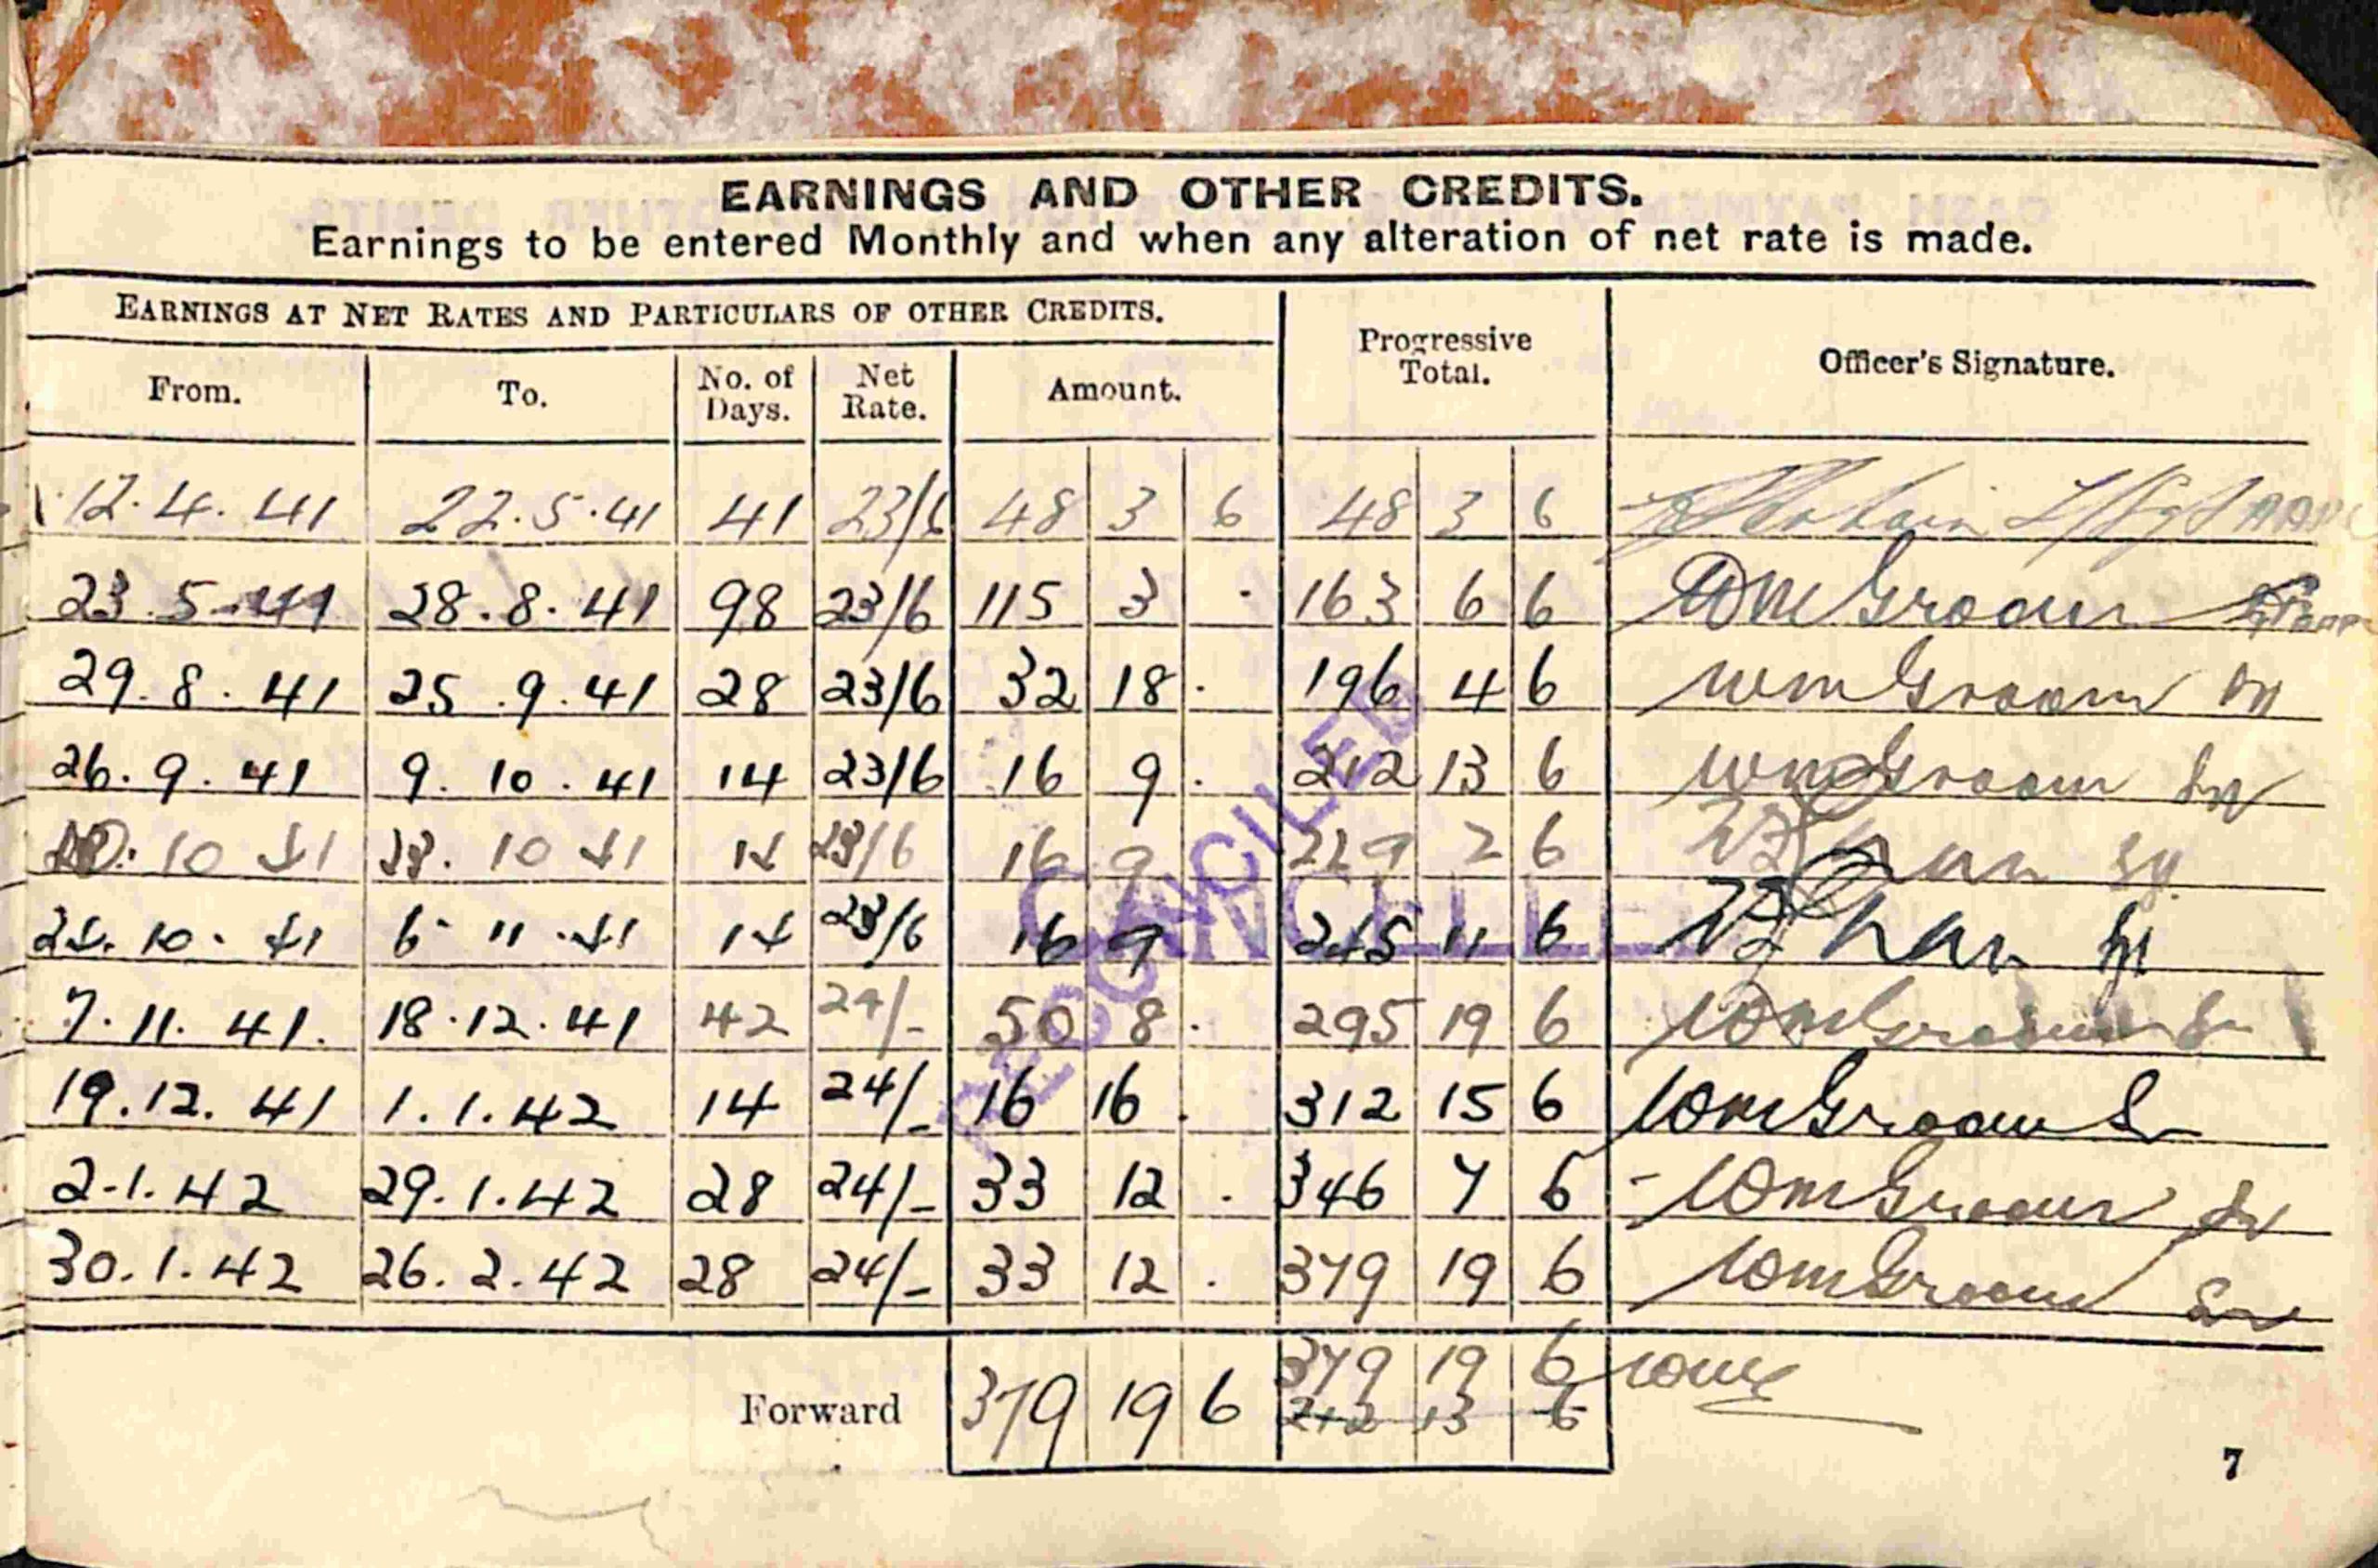 EARNINGS AND OTHER CREDITS.
Earnings to be entered Monthly and when any alteration of net rate is made.
EARNINGS AT NET RATES AND PARTICULARS OF OTHER CREDITS. Progressive Total. Officer's Signature.
From. To. No. of Days. Net Rate. Amount.
12.4.41 22.5.41 41 23/6 48 3 6 48 3 6
23.5.41 28.8.41 98 23/6 115 3 . 163 6 6 WmGroom
29.8.41 25.9.41 28 23/6 32 18 . 196 4 6 WmGroom
26.9.41 9.10.41 14 23/6 16 9 . 212 13 6 WmGroom
10.10 41 23.10 41 14 23/6 16 9 229 2 6
24.10.41 6 11.41 14 23/6 16 9 245 11 6
7.11.41. 18.12.41 42 24/- 50 8 . 295 19 6 WmGroom
19.12.41 1.1.42 14 24/- 16 16 . 312 15 6 WmGroom
2.1.42 29.1.42 28 24/- 33 12 . 346 7 6 WmGroom
30.1.42 26.2.42 28 24/- 33 12 . 379 19 6 WmGroom
RECONCILED
CANCELLED
379 19 6
Forward 379 19 6 212 13 6
7